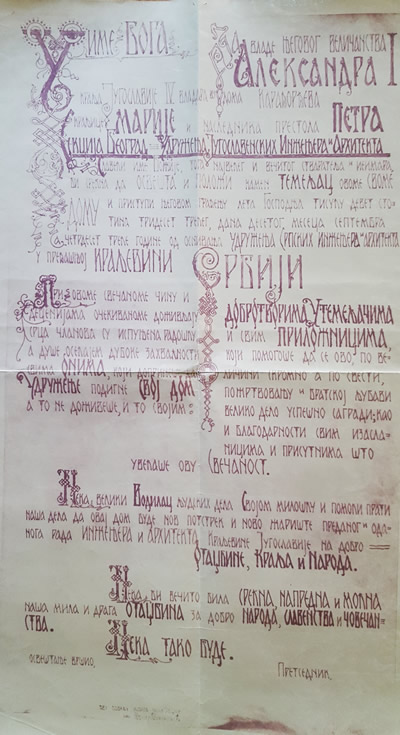 У име Бога
За владе Његовог Величанства
Александра I
Краља Југославије IV владара Дома Карађорђева
Краљице Марије и наследника престола Петра
Секција Београд Удружења Југословенских Инжењера и Архитекта
име Божје, највећег и вечитог створитеља неимара
да освешта и положи камен темељац овоме своме
дому и приступи његовом грађењу лета Господња тисућу девет стотина
тридесет трећег, дана десетог, месеца септембра
а четрдесет треће године од оснивања Удружења Српских Инжењера и Архитекта
у пређашњој Краљевини Србији
При овоме свечаноме чину и
деценијама очекиваноме доживљају
срца чланова су испуњена радошћу
а душе осећајем дубоке захвалности
свима онима, који
Удружење подигне свој дом
а то не доживеше, и то својим:
добротворима утемељачима
и свим приложницима,
који помогоше да се ово по величини
скромно а по свести,
пожртвовању и братској љубави
велико дело успешно сагради; као
и благодарности свим изасланицима
и присутнима што
увелаше ову свечаност.
Нека велики Водилац људских дела Својом милошћу и помоћи прати
наша дела да овај дом буде нов потстрек и ново жариште преданог и оданога
рада инжењера и архитекта Краљевине Југославије на добро
Отаџбине, Краља и Народа.
Нека би вечито била срећна, напредна и моћна
наша мила и драга Отаџбина за добро народа, славенства и човечанства.
Нека тако буде.
Освештање вршио,
Претседник